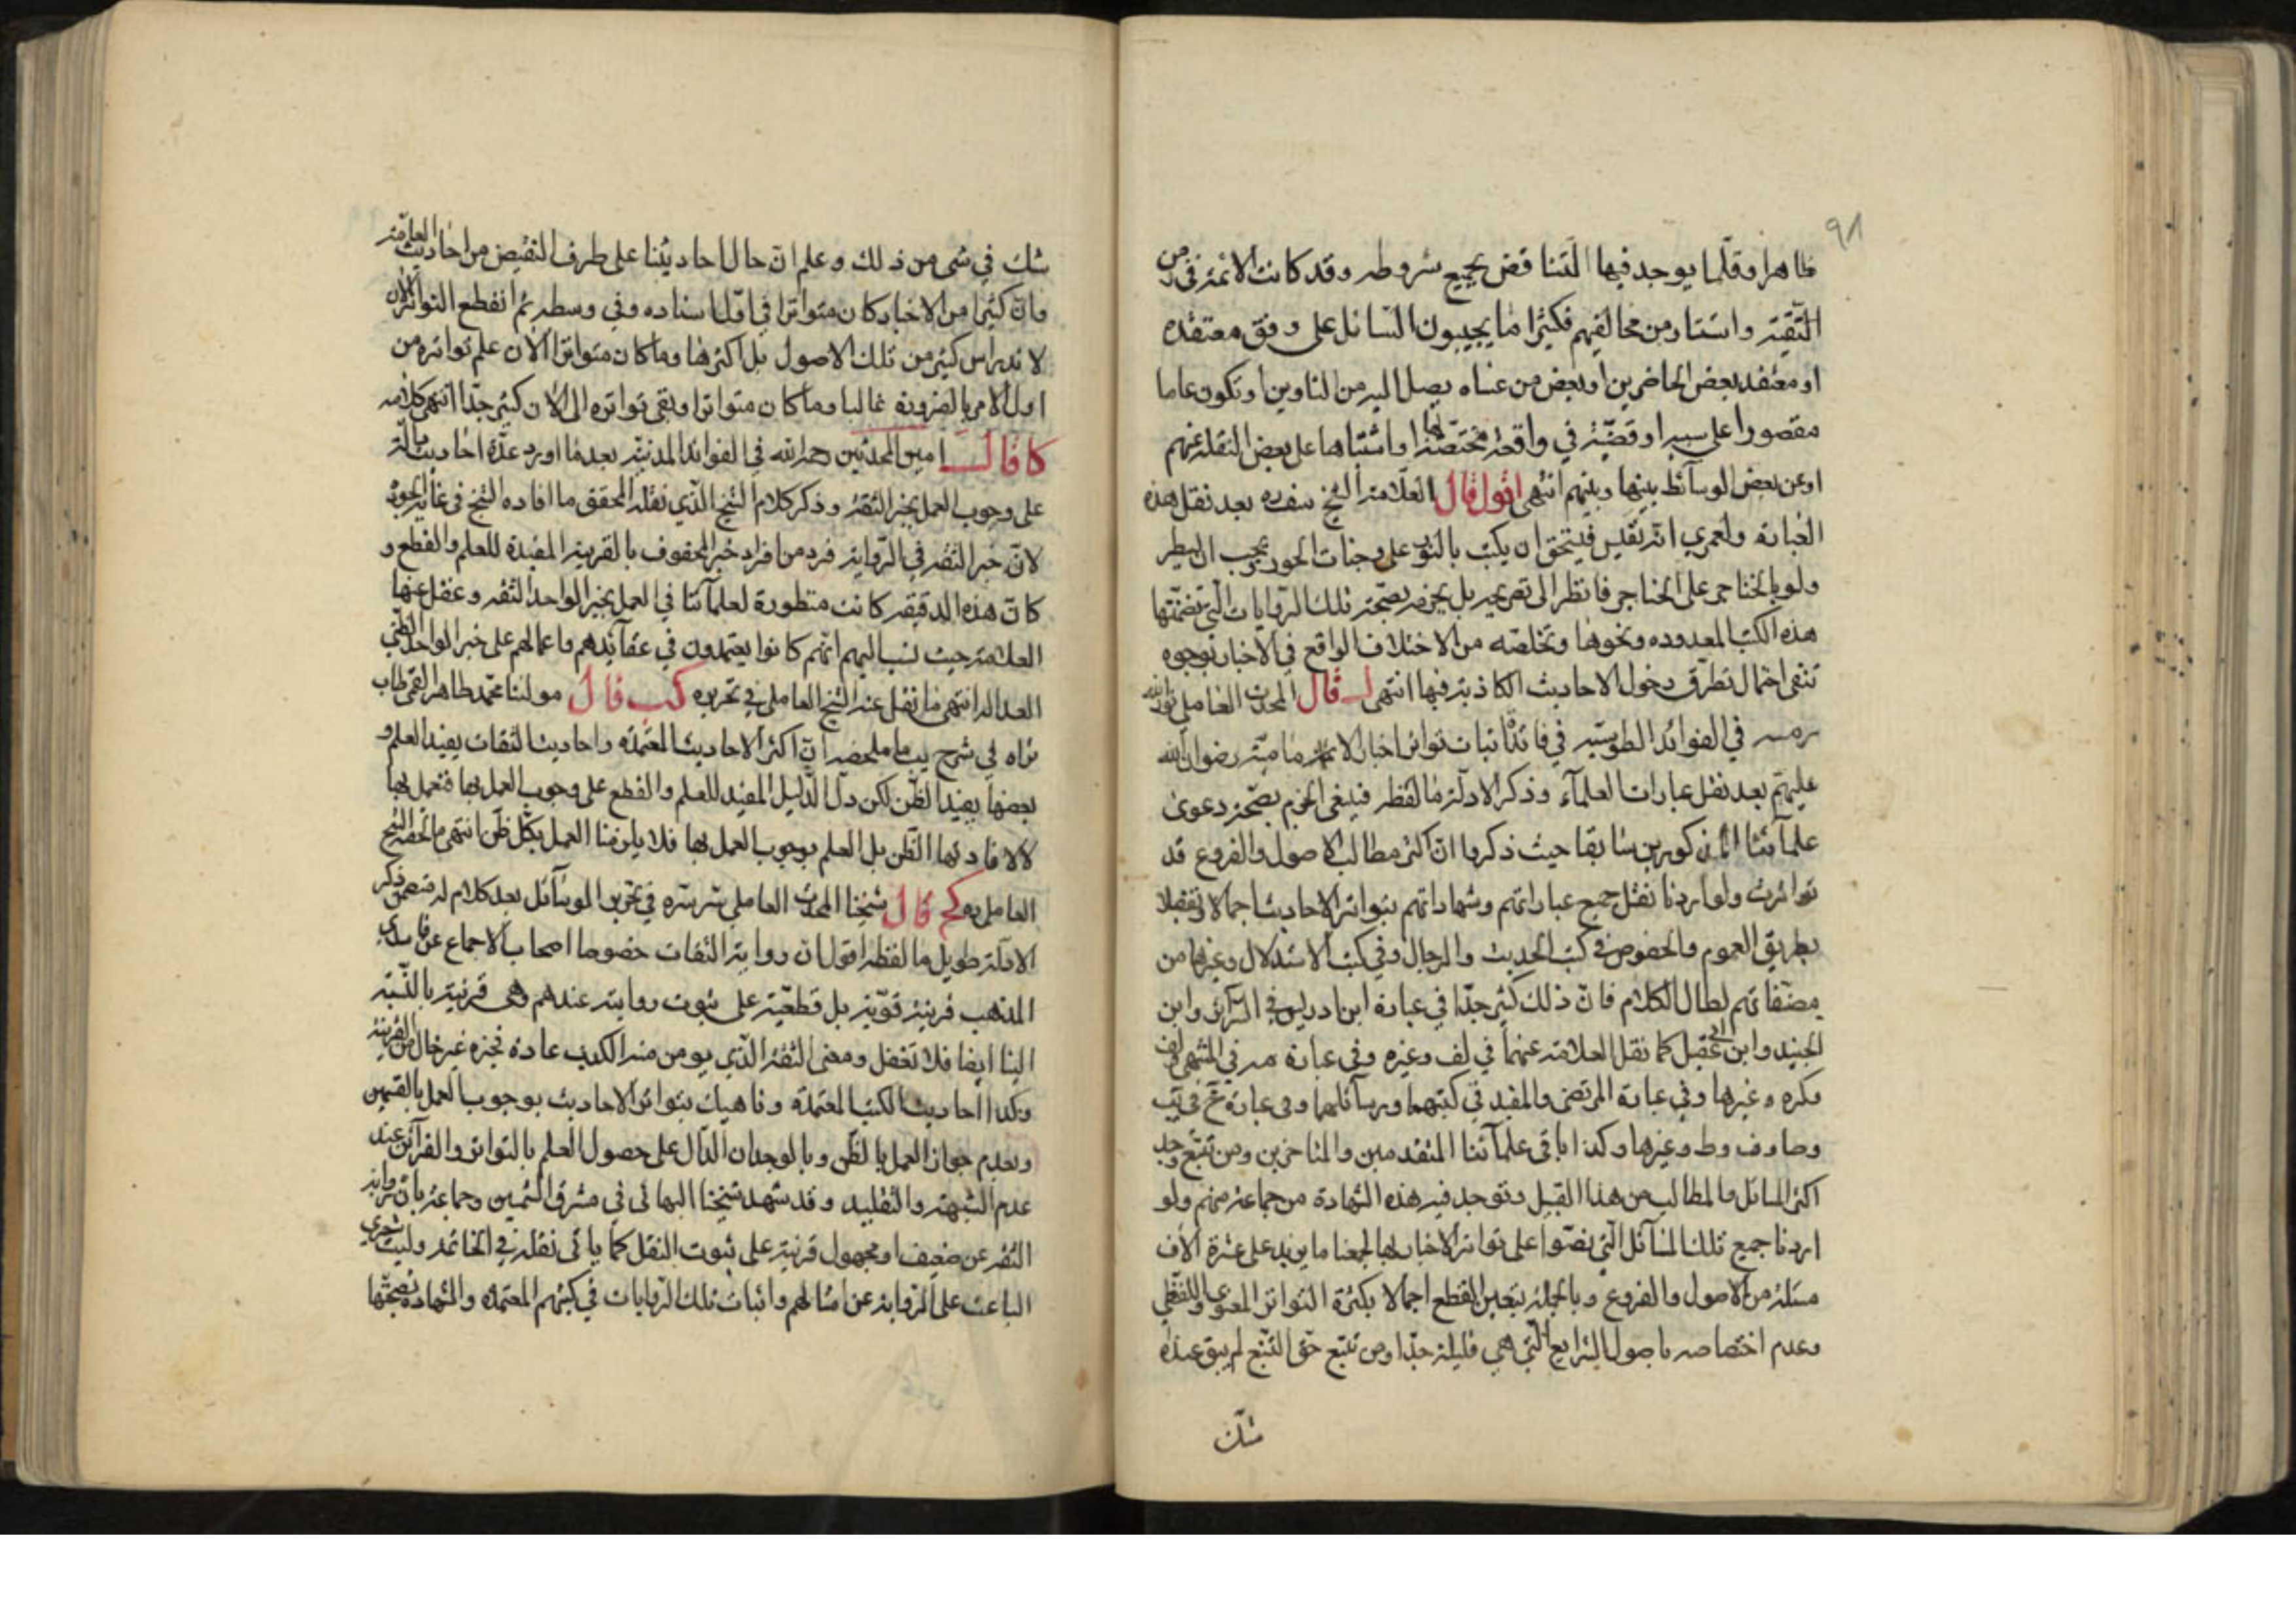 ٩٨
ظاهرا وقلّما يوجد فيها التناقض بجميع شروطه وقد كانت الائمة في زمن
التّقيّة واستتار من مخالفيهم فكثيرا ما يجيبون السّائل على وفق معتقده
او معتقد بعض الحاضرين او بعض من عساه يصل اليه من المناوين او تكون عاما
مقصورا على سببه او قضيّة في واقعة مختصّة بها او اشتباها على بعض النقلة عنهم
او عن بعض الوسائط بينها وبينهم انتهى اقول قال العلامة الشيخ بعد نقل هذه
العبارة ولعمري انه نفيس فيستحق ان يكتب بالنور على وجنات الحور يجب ان يسطر
ولو بالخناجر على الحناجر فانظر الى تصريحه بل بجزمه بصحّة تلك الرّوايات الّتي تضمّنتها
هذه الكتب المعدوده ونحوها وتخلصه من الاختلاف الواقع في الاخبار بوجوه
تنفى احتمال تطرّق دخول الاحاديث الكاذبة فيها انتهى قال المحدث العاملي نور الله
رمسه في الفوائد الطوسيّة في فائدة اثبات تواتر اخبار الامامية رضوان الله
عليهم بعد نقل عبارات العلمآء وذكر الادلّة ما لفظه فينبغي الجزم بصحّة دعوى
علمآئنا المذكورين سابقا حيث ذكروا ان اكثر مطالب الاصول والفروع قد
تواترت ولو اردنا نقل جميع عباراتهم وشهاداتهم بتواتر الاحاديث اجمالا وتفصيلا
بطريق العموم والخصوص في كتب الحديث والرجال وفي كتب الاستدلال وغيرها من
مصنّفاتهم لطال الكلام فانّ ذلك كثير جدّا في عبارة ابن ادريس في السرائر وابن
الجنيد وابن ابي عقيل كما نقل العلامة عنهما في لف وغيره وفي عبارة مه في المنتهى ولف
وكره وغيرها وفي عبارة المرتضى والمفيد في كتبهما ورسائلهما وفي عبارة خ في يب
وصا وف وط وغيرها وكذا باقي علمآئنا المتقدمين والمتاخرين ومن تتبّع وجد
اكثر المسائل والمطالب من هذا القبيل وتوجد فيه هذه الشهادة من جماعة منهم ولو
اردنا جميع تلك المسآئل الّتي نصّوا على تواتر الاخبار بها لجمعنا ما يزيد على عشرة الاف
مسئلة من الاصول والفروع وبالجملة يتعين القطع اجمالا بكثرة التواتر المعنوي واللفظي
وعدم اختصاصه باصول الشرايع الّتي هي قليلة جدّا ومن تتبع حقّ التتبّع لم يبق عنده
شك
شك في شى من ذلك وعلم انّ حال احاديثنا على طرف النقيض من احاديث العامّة
وانّ كثيرا من الاخبار كان متواترا في اوّل اسناده وفي وسطه ثم انقطع التواتر الان
لاندراس كثير من تلك الاصول بل اكثرها وما كان متواترا الان علم تواتره من
اول الامر بالضرورة غالبا وما كان متواترا وبقى تواتره الى الان كثير جدّا انتهى كلامه
كا قال امين المحدثين رحمه الله في الفوائد المدنيّة بعد ما اورد عدّة احاديث دالّة
على وجوب العمل بخبر الثقة وذكر كلام الشيخ الّذي نقله المحقق ما افاده الشيخ في غاية الجودة
لانّ خبر الثقة في الرّواية فرد من افراد خبر المحفوف بالقرينة المفيدة للعلم والقطع و
كانّ هذه الدقيقة كانت منظورة لعلمآئنا في العمل بخبر الواحد الثقة وغفل عنها
العلامة حيث نسب اليهم انّهم كانوا يعتمدون في عقآئدهم واعمالهم على خبر الواحد الظنّي
العدالة انتهى ما نقل عنه الشيخ العاملي في تحريره كب قال مولنا محمد طاهر القمى طاب
ثراه في شرح يب ما ملخصه انّ اكثر الاحاديث المعتمدة واحاديث الثقات يفيد العلم و
بعضها يفيد الظّن لكن دلّ الدّليل المفيد للعلم والقطع على وجوب العمل بها فنعمل بها
لا لافادتها الظّن بل العلم بوجوب العمل بها فلا يلزمنا العمل بكلّ ظّن انتهى ما لخصه الشيخ
العاملي ره كج قال شيخنا المحدث العاملي سّر سّره في تحرير الوسآئل بعد كلام له متضمن ذكر
الادلة طويل ما لفظه اقول ان رواية الثقات خصوصا اصحاب الاجماع عن فاسدي
المذهب قرينة قويّة بل قطعيّة على ثبوت روايته عندهم وهي قرينة بالنّسبة
الينا ايضا فلا تغفل ومعنى الثقة الّذي يومن منه الكذب عادة فخبره غير خال من القرينة
وكذا احاديث الكتب المعتمدة وناهيك بتواتر الاحاديث بوجوب العمل بالقسمين
وبعدم جواز العمل بالظّن وبالوجدان الدّال على حصول العلم بالتواتر والقرآئن عند
عدم الشبهة والتقليد وقد شهد شيخنا البهائى في مشرق الشمسين وجماعة بانّ رواية
الثقة عن ضعيف او مجهول قرينة على ثبوت النقل كما ياتى نقله في الخاتمة وليت شعري
الباعث على الرّواية عن امثالهم واثبات تلك الرّوايات في كتبهم المعتمدة والشهادة بصحّتها